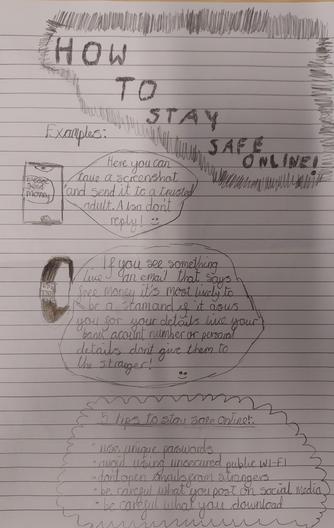 HOW
TO
STAY
SAFE
ONLINE!
Examples:
Please
send
money
Here you can
take a screenshot
and send it to a trusted
adult. Also don't
reply!
If you see something
like an email that says
free money it's most likely to
be a scam and if it asks
you for your details like your
bank account number or personal
details dont give them to
the stranger!
5 tips to stay safe online:
• use unique passwords
• avoid using unsecured public Wi-Fi
• don't open emails from strangers
• be careful what you post on social media
• be careful what you download